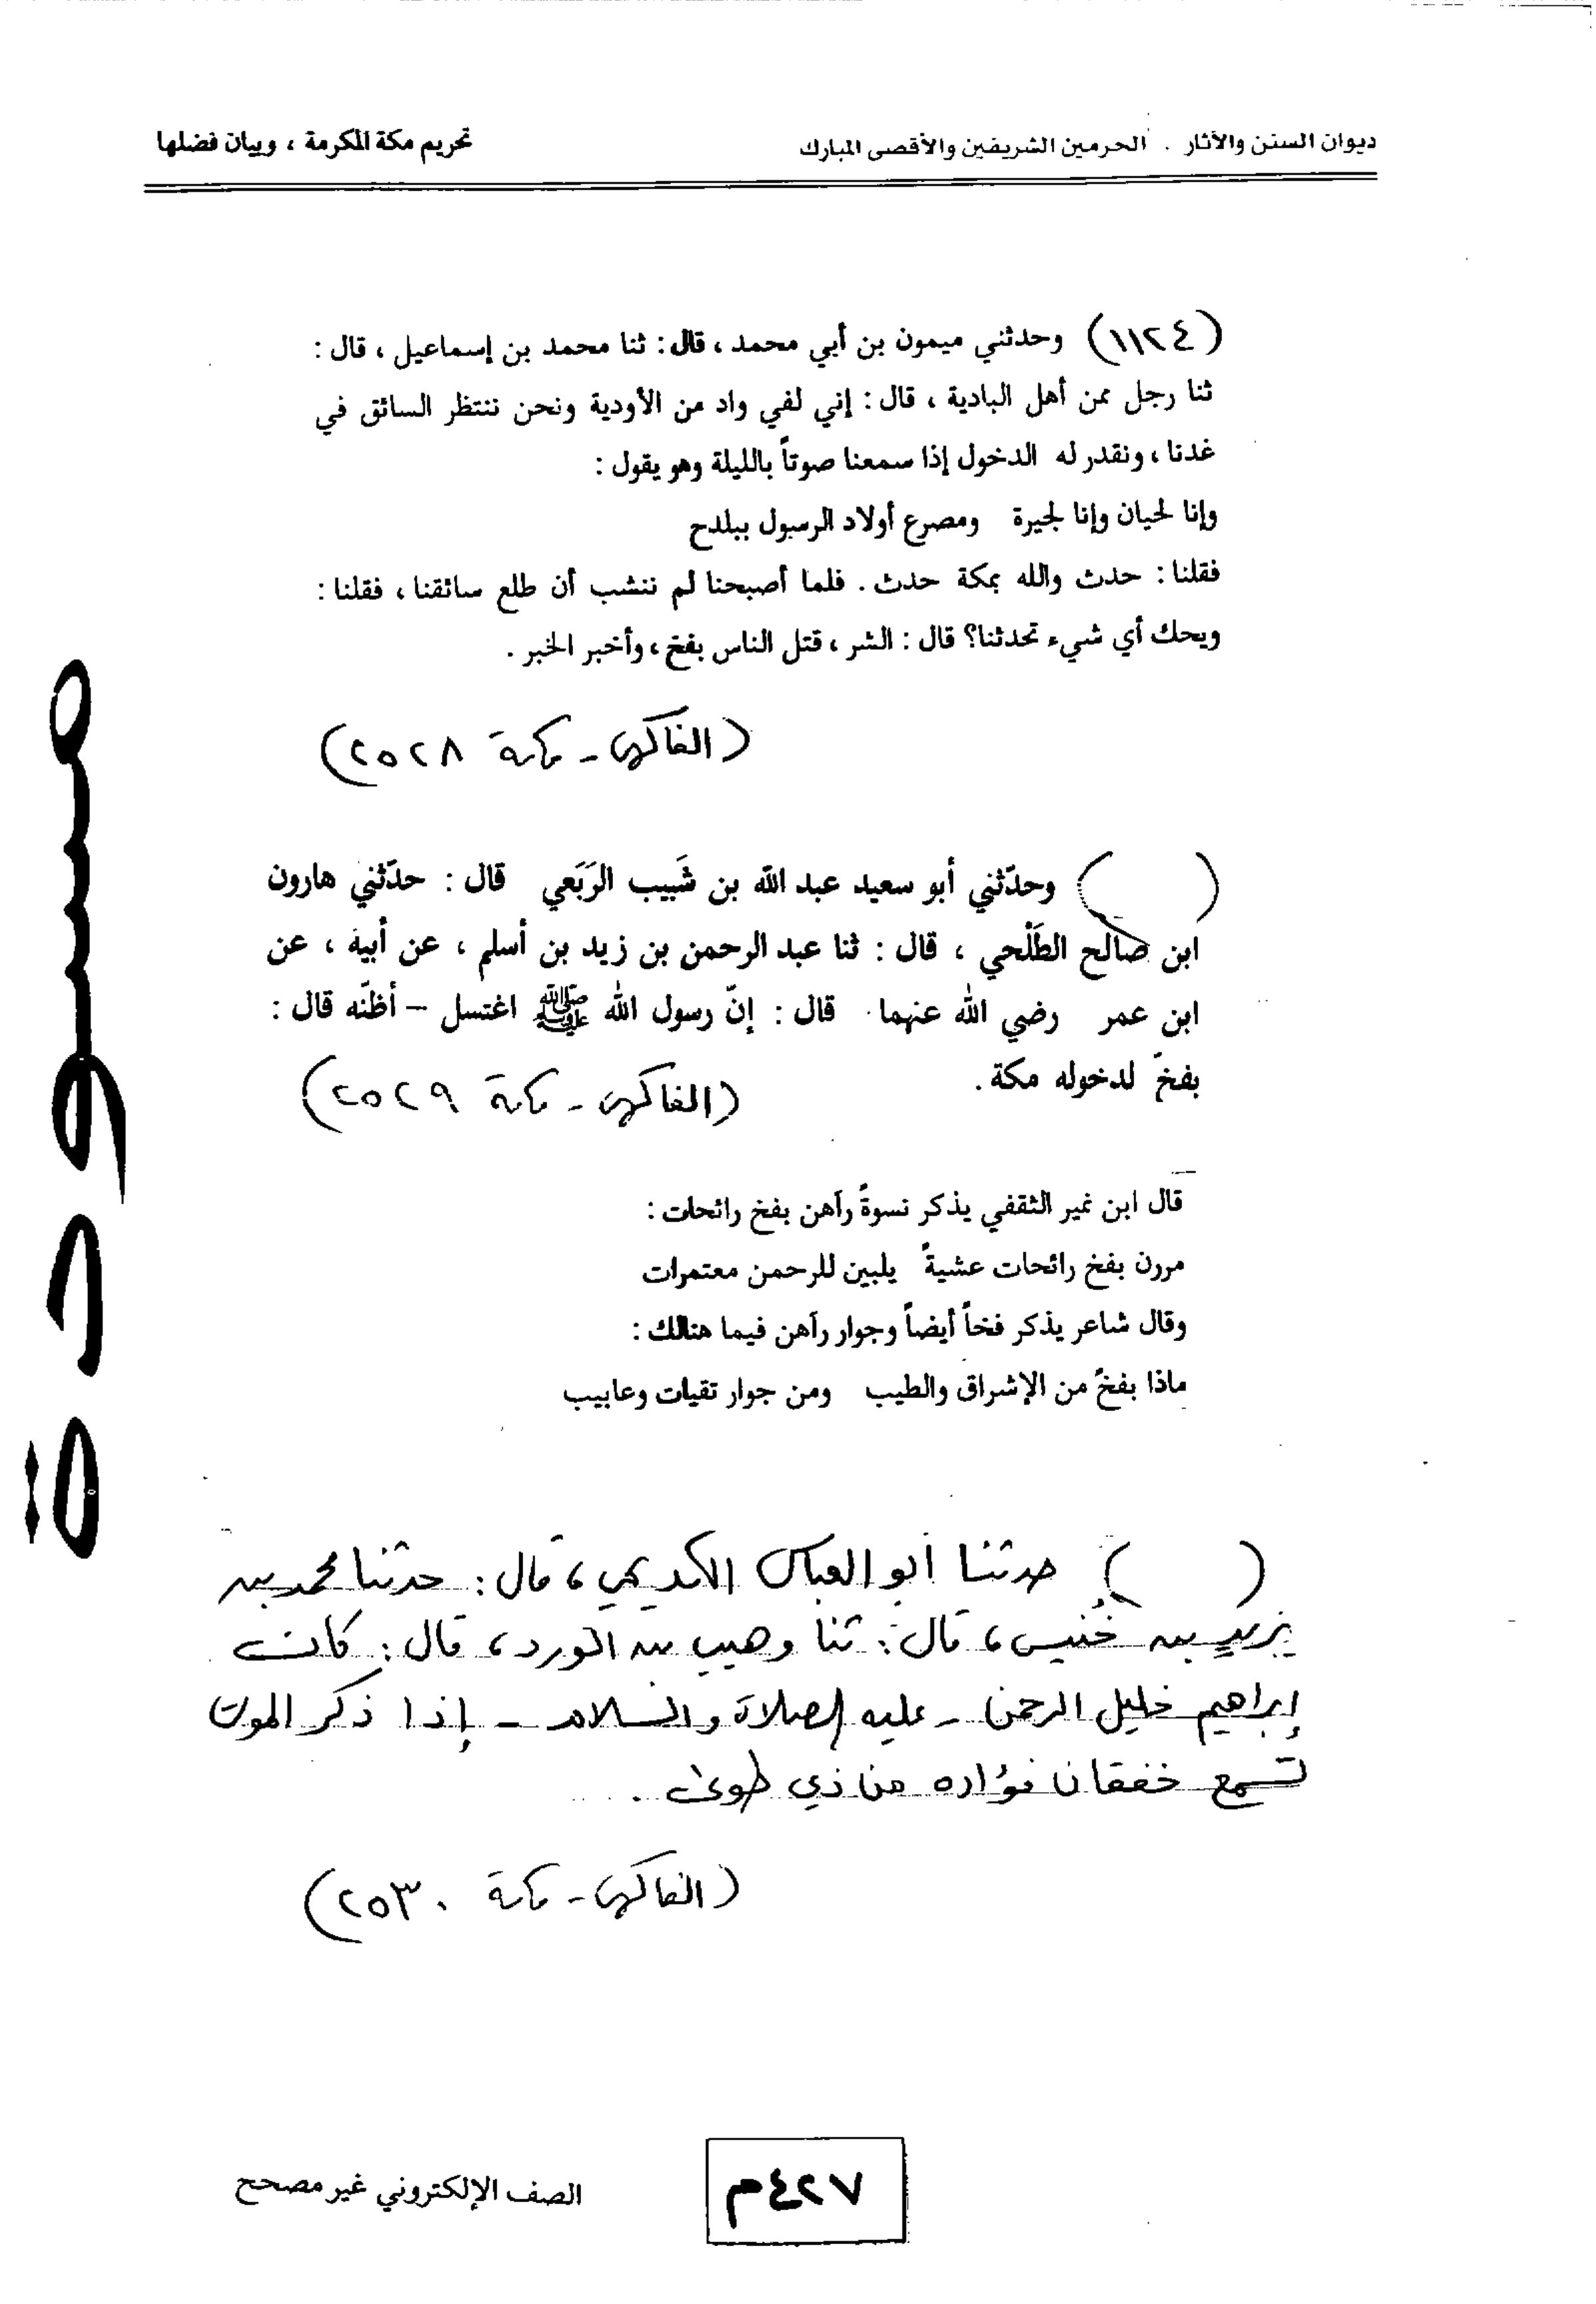 ديوان السنن والآثار . الحرمين الشريفين والأقصى المبارك
تحريم مكة المكرمة ، وبيان فضلها
(١١٢٤) وحدثني ميمون بن أبي محمد ، قال : ثنا محمد بن إسماعيل ، قال :
ثنا رجل ممن أهل البادية ، قال : إني لفي واد من الأودية ونحن ننتظر السائق في
غدنا ، ونقدر له الدخول إذا سمعنا صوتاً بالليلة وهو يقول :
وإنا لحيان وإنا لجيرة ومصرع أولاد الرسول ببلدح
فقلنا : حدث والله بمكة حدث . فلما أصبحنا لم ننشب أن طلع سائقنا ، فقلنا :
ويحك أي شيء تحدثنا؟ قال : الشر ، قتل الناس بفخ ، وأخبر الخبر .
(الفاكهي - مكة ٢٥٢٨)
( ) وحدّثني أبو سعيد عبد الله بن شَبيب الرَبَعي قال : حدّثني هارون
ابن صالح الطَلْحي ، قال : ثنا عبد الرحمن بن زيد بن أسلم ، عن أبيه ، عن
ابن عمر رضي الله عنهما قال : إنّ رسول الله ﷺ اغتسل - أظنّه قال :
بفخّ لدخوله مكة .
(الفاكهي - مكة ٢٥٢٩)
قال ابن نمير الثقفي يذكر نسوةً رآهن بفخ رائحات :
مررن بفخ رائحات عشيةً يلبين للرحمن معتمرات
وقال شاعر يذكر فخاً أيضاً وجوار رآهن فيما هنالك :
ماذا بفخّ من الإشراق والطيب ومن جوار تقيات وعابيب
( ) حدثنا أبو العباس الكديمي ، قال : حدثنا محمد بن
يزيد بن خُنيس ، قال : ثنا وهيب بن الورد ، قال : كانت
إبراهيم خليل الرحمن - عليه الصلاة والسلام - إذا ذكر الموت
تسمع خفقان فؤاده من ذي طوى .
(الفاكهي - مكة ٢٥٣٠)
مسودة
٤٢٧م
الصف الإلكتروني غير مصحح